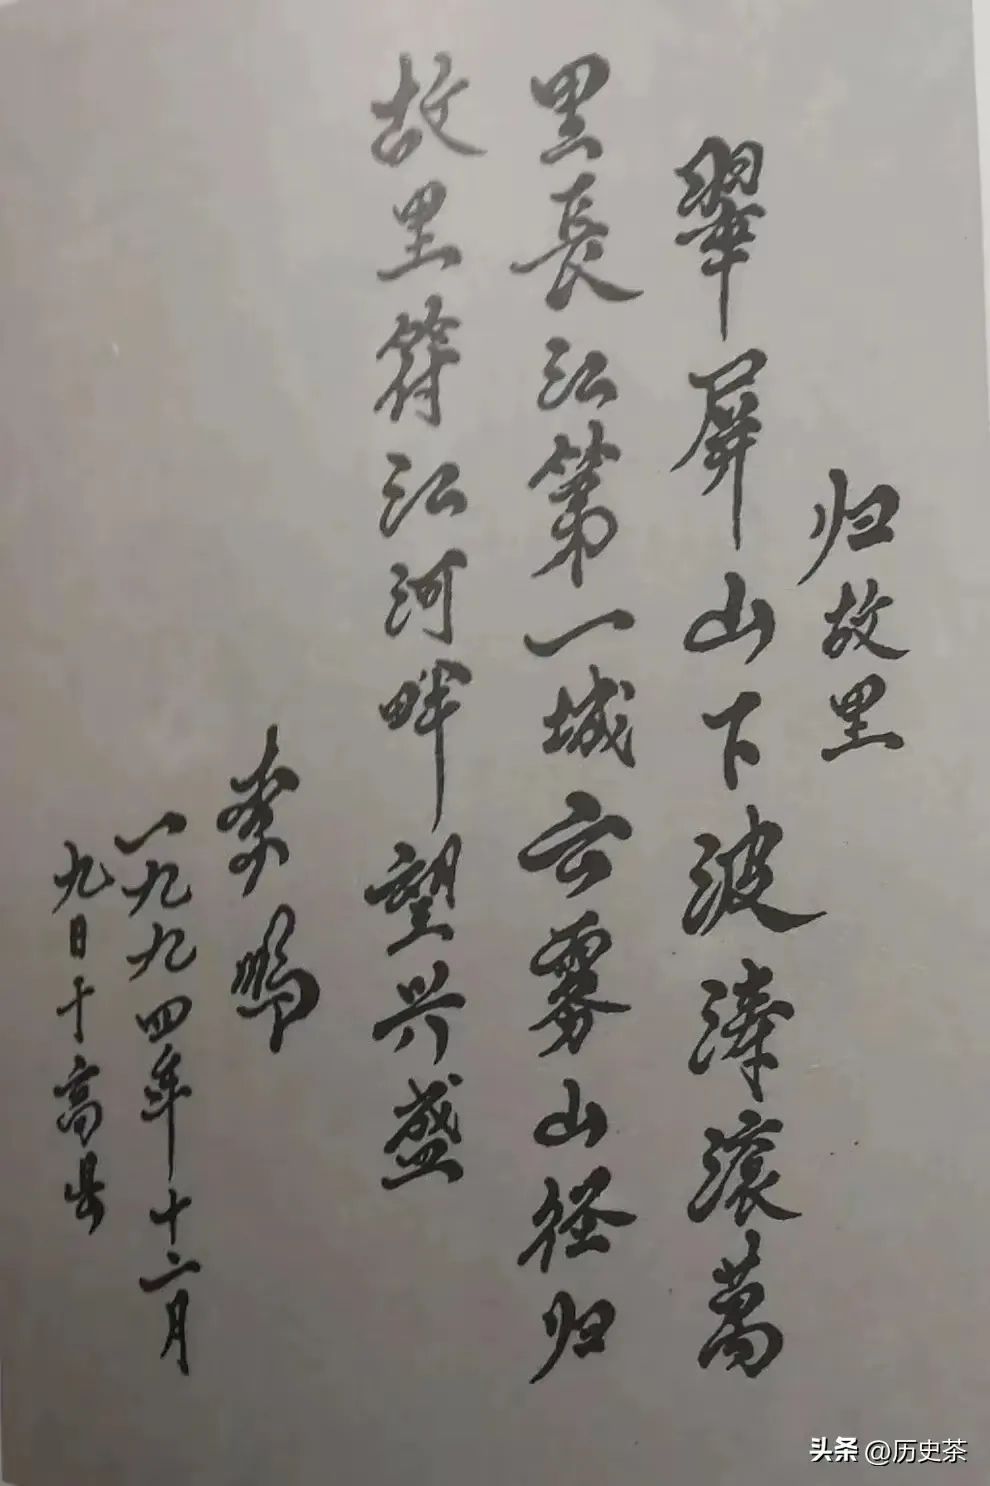 归故里
翠屏山下波涛滚萬
里長江第一城云雾山径归
故里符江河畔望兴盛
李鹏
一九九四年十二月
九日于高县
头条 @历史茶